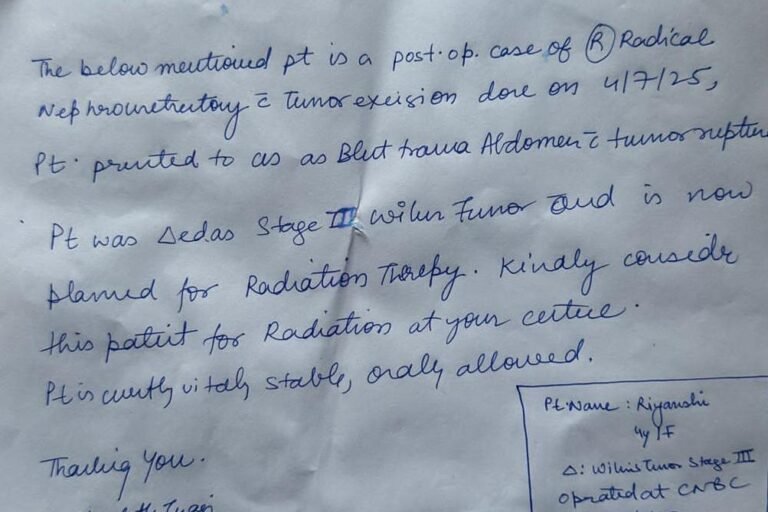 The below mentioned pt is a post.op. case of Ⓡ Radical
Nephrouretrectomy c̄ Tumor excision done on 4/7/25,
Pt. presnted to us as Blut trama Abdomen c̄ tumor rupture
Pt was Δed as Stage III Wilm Tumor and is now
planned for Radiation Therepy. Kindly consider
this patient for Radiation at your centre.
Pt is curently vitaly stable, orally allowed.
Thanking You.
Pt Name : Riyanshi
4y/F
Δ: Wilm's Tumor Stage III
Oprated at CNBC